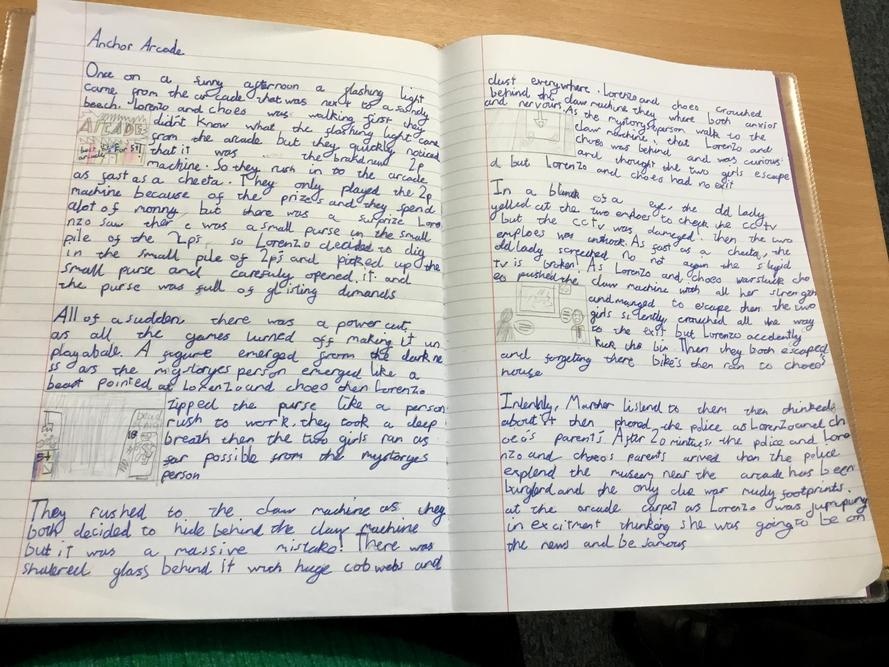 Anchor Arcade
Once on a sunny afternoon a flashing light
came from the arcade that was next to a sandy
beech. Lorenzo and choes was walking first they
ARCADE
didn't know what the flashing light came
from the arcade but they quickly noticed
that it was ... the brand new 2p
machine. So they rush in to the arcade
as fast as a cheeta. They only played the 2p
machine because of the prizes and they spend
alot of monny but there was a surprize Lore
nzo saw ther e was a small purse in the small
pile of the 2ps so Lorenzo decided to dig
in the small pile of 2ps and picked up the
small purse and carefuly opened it and
the purse was full of glisting dimands
All of a sudden there was a power cut
as all the games turned off making it un
playabale. A figure emerged from the dark ne
ss as the mystoryes person emerged like a
beast pointed at Lorenzo and choeo then Lorenzo
zipped the purse like a person
rush to work. they took a deep
breath then the two girls ran as
far possible from the mystoryes
person
They rushed to the claw machine as they
both decided to hide behind the claw machine
but it was a massive mistake! There was
shatered glass behind it with huge cob webs and
dust everywhere. Lorenzo and choeo crouched
behind the claw machine they where both anxior
and nervours. As the mystorys person walk to the
claw machine that Lorenzo and
choeo was behind and was curious
and thought the two girls escape
d but Lorenzo and choeos had no exit
In a blink of a eye the old lady
yelled at the two employes to check the cctv
but the cctv was damaged. then the two
employes was unthork. As fast as a cheeta, the
old lady screeched no not again the stupid
tv is broken! As Lorenzo and choeos was stuck cho
eo pushed the claw machine with all her strength
and manged to escape then the two
girls silently crouched all the way
to the exit but Lorenzo accedently
kick the bin Then they both escaped
and forgeting there bike's then ran to choeo's
house
Intently, Marther listend to them then thinkeds
about it then phoned the police as Lorenzo and ch
oeo's parents. After 20 mintues, the police and Lore
nzo and choeo's parents arived then the police
explend the museum near the arcade has been
burglard and the only clue war mudy footprints
at the arcade carpet as Lorenzo was jumping
in excitment thinking she was going to be on
the news and be famous